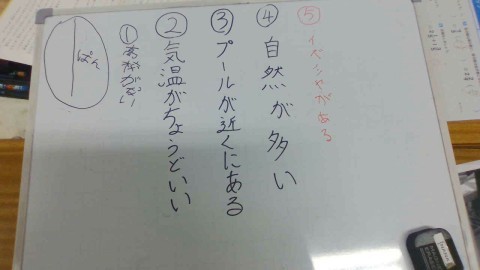 ぱん
①がない
②気温がちょうどいい
③プールが近くにある
④自然が多い
⑤がある